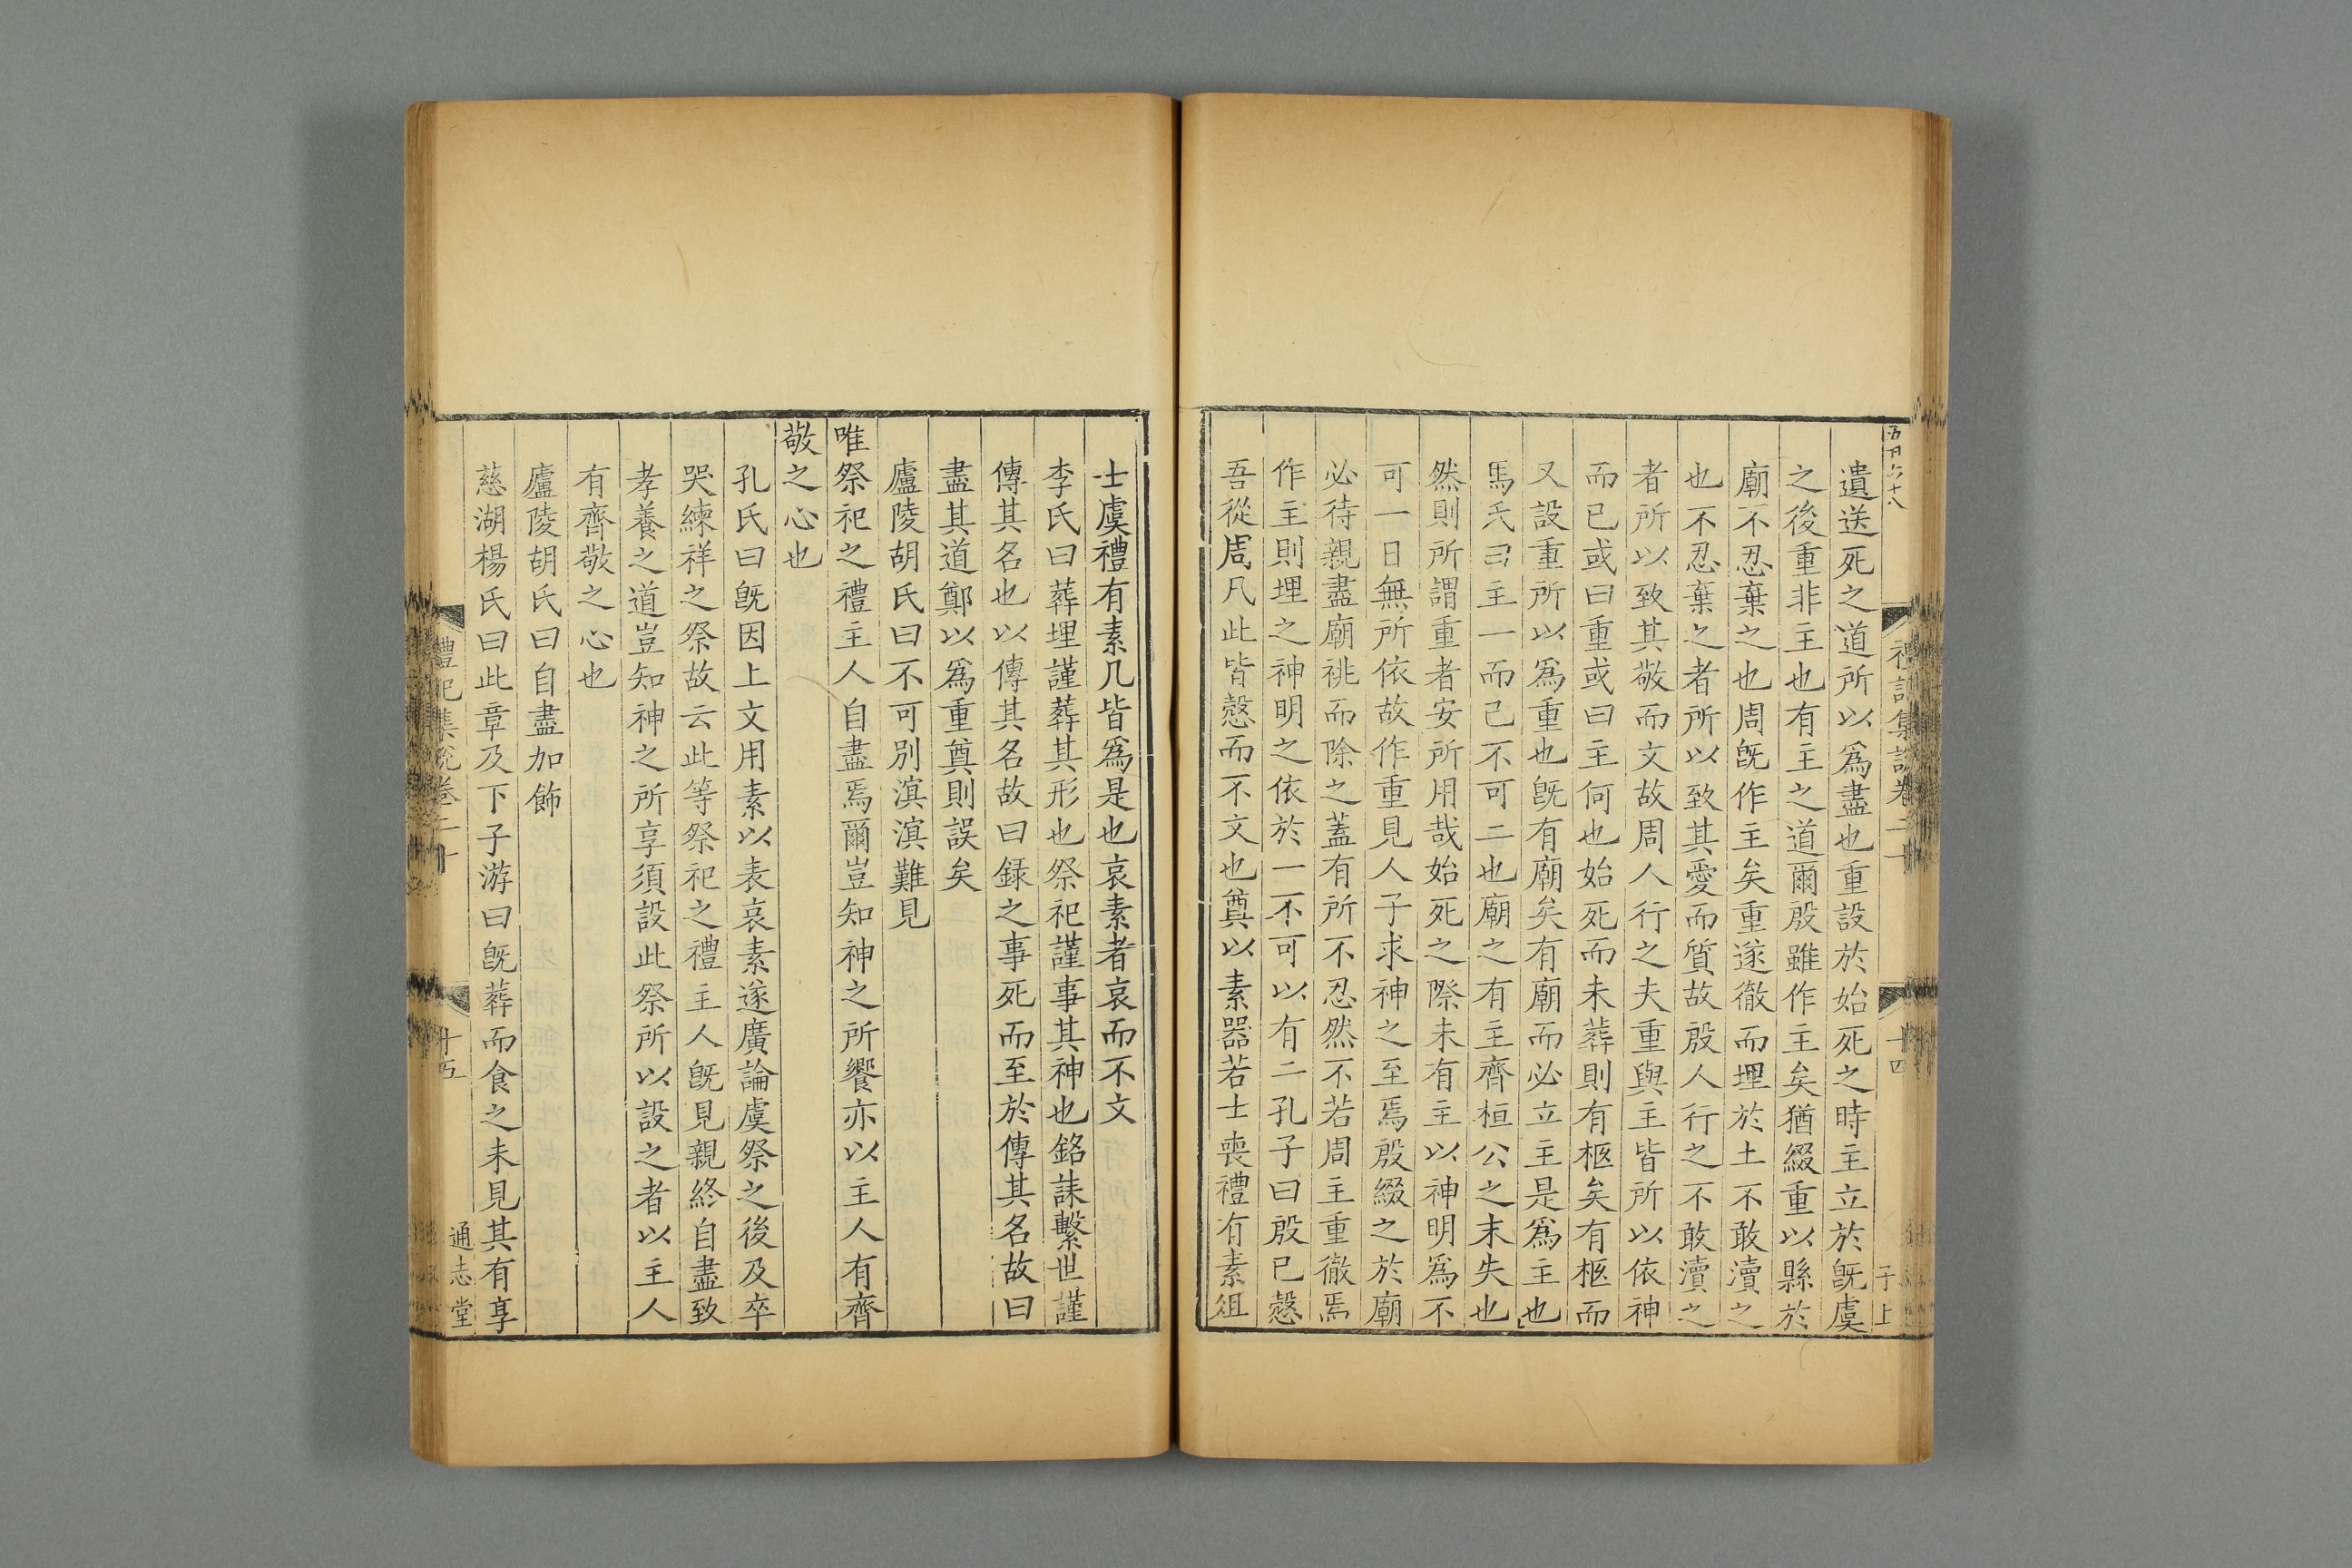 五百六十八
禮記集說卷二十
十四
子上
遺送死之道所以爲盡也重設於始死之時主立於旣虞
之後重非主也有主之道爾殷雖作主矣猶綴重以縣於
廟不忍棄之也周旣作主矣重遂徹而埋於土不敢瀆之
也不忍棄之者所以致其愛而質故殷人行之不敢瀆之
者所以致其敬而文故周人行之夫重與主皆所以依神
而已或曰重或曰主何也始死而未葬則有柩矣有柩而
又設重所以爲重也旣有廟矣有廟而必立主是爲主也
馬氏曰主一而已不可二也廟之有主齊桓公之末失也
然則所謂重者安所用哉始死之際未有主以神明爲不
可一日無所依故作重見人子求神之至焉殷綴之於廟
必待親盡廟祧而除之蓋有所不忍然不若周主重徹焉
作主則埋之神明之依於一不可以有二孔子曰殷已慤
吾從周凡此皆慤而不文也奠以素器若士喪禮有素俎
士虞禮有素几皆爲是也哀素者哀而不文
李氏曰葬埋謹葬其形也祭祀謹事其神也銘誄繫世謹
傳其名也以傳其名故曰録之事死而至於傳其名故曰
盡其道鄭以爲重奠則誤矣
廬陵胡氏曰不可別滇滇難見
唯祭祀之禮主人自盡焉爾豈知神之所饗亦以主人有齊
敬之心也
孔氏曰旣因上文用素以表哀素遂廣論虞祭之後及卒
哭練祥之祭故云此等祭祀之禮主人旣見親終自盡致
孝養之道豈知神之所享須設此祭所以設之者以主人
有齊敬之心也
廬陵胡氏曰自盡加飾
慈湖楊氏曰此章及下子游曰旣葬而食之未見其有享
禮記集說卷二十
十五
通志堂